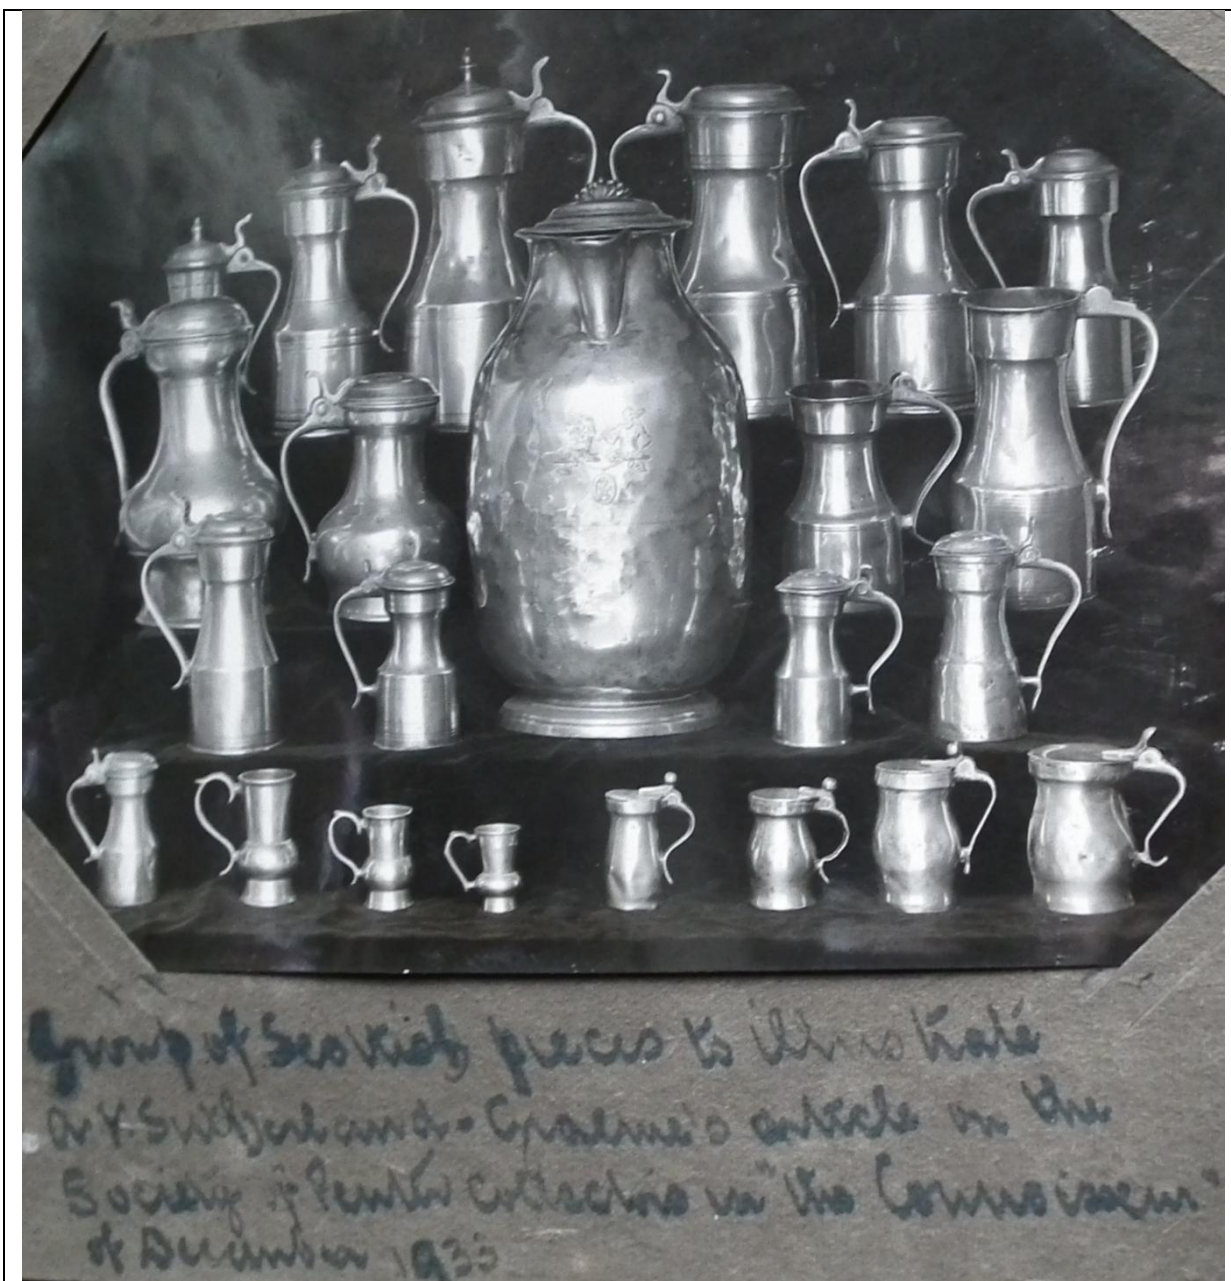 Group of Scottish pieces to illustrate
A.V. Sutherland-Graeme's article on the
Society of Pewter Collectors in "the Connoisseur"
of December 1933